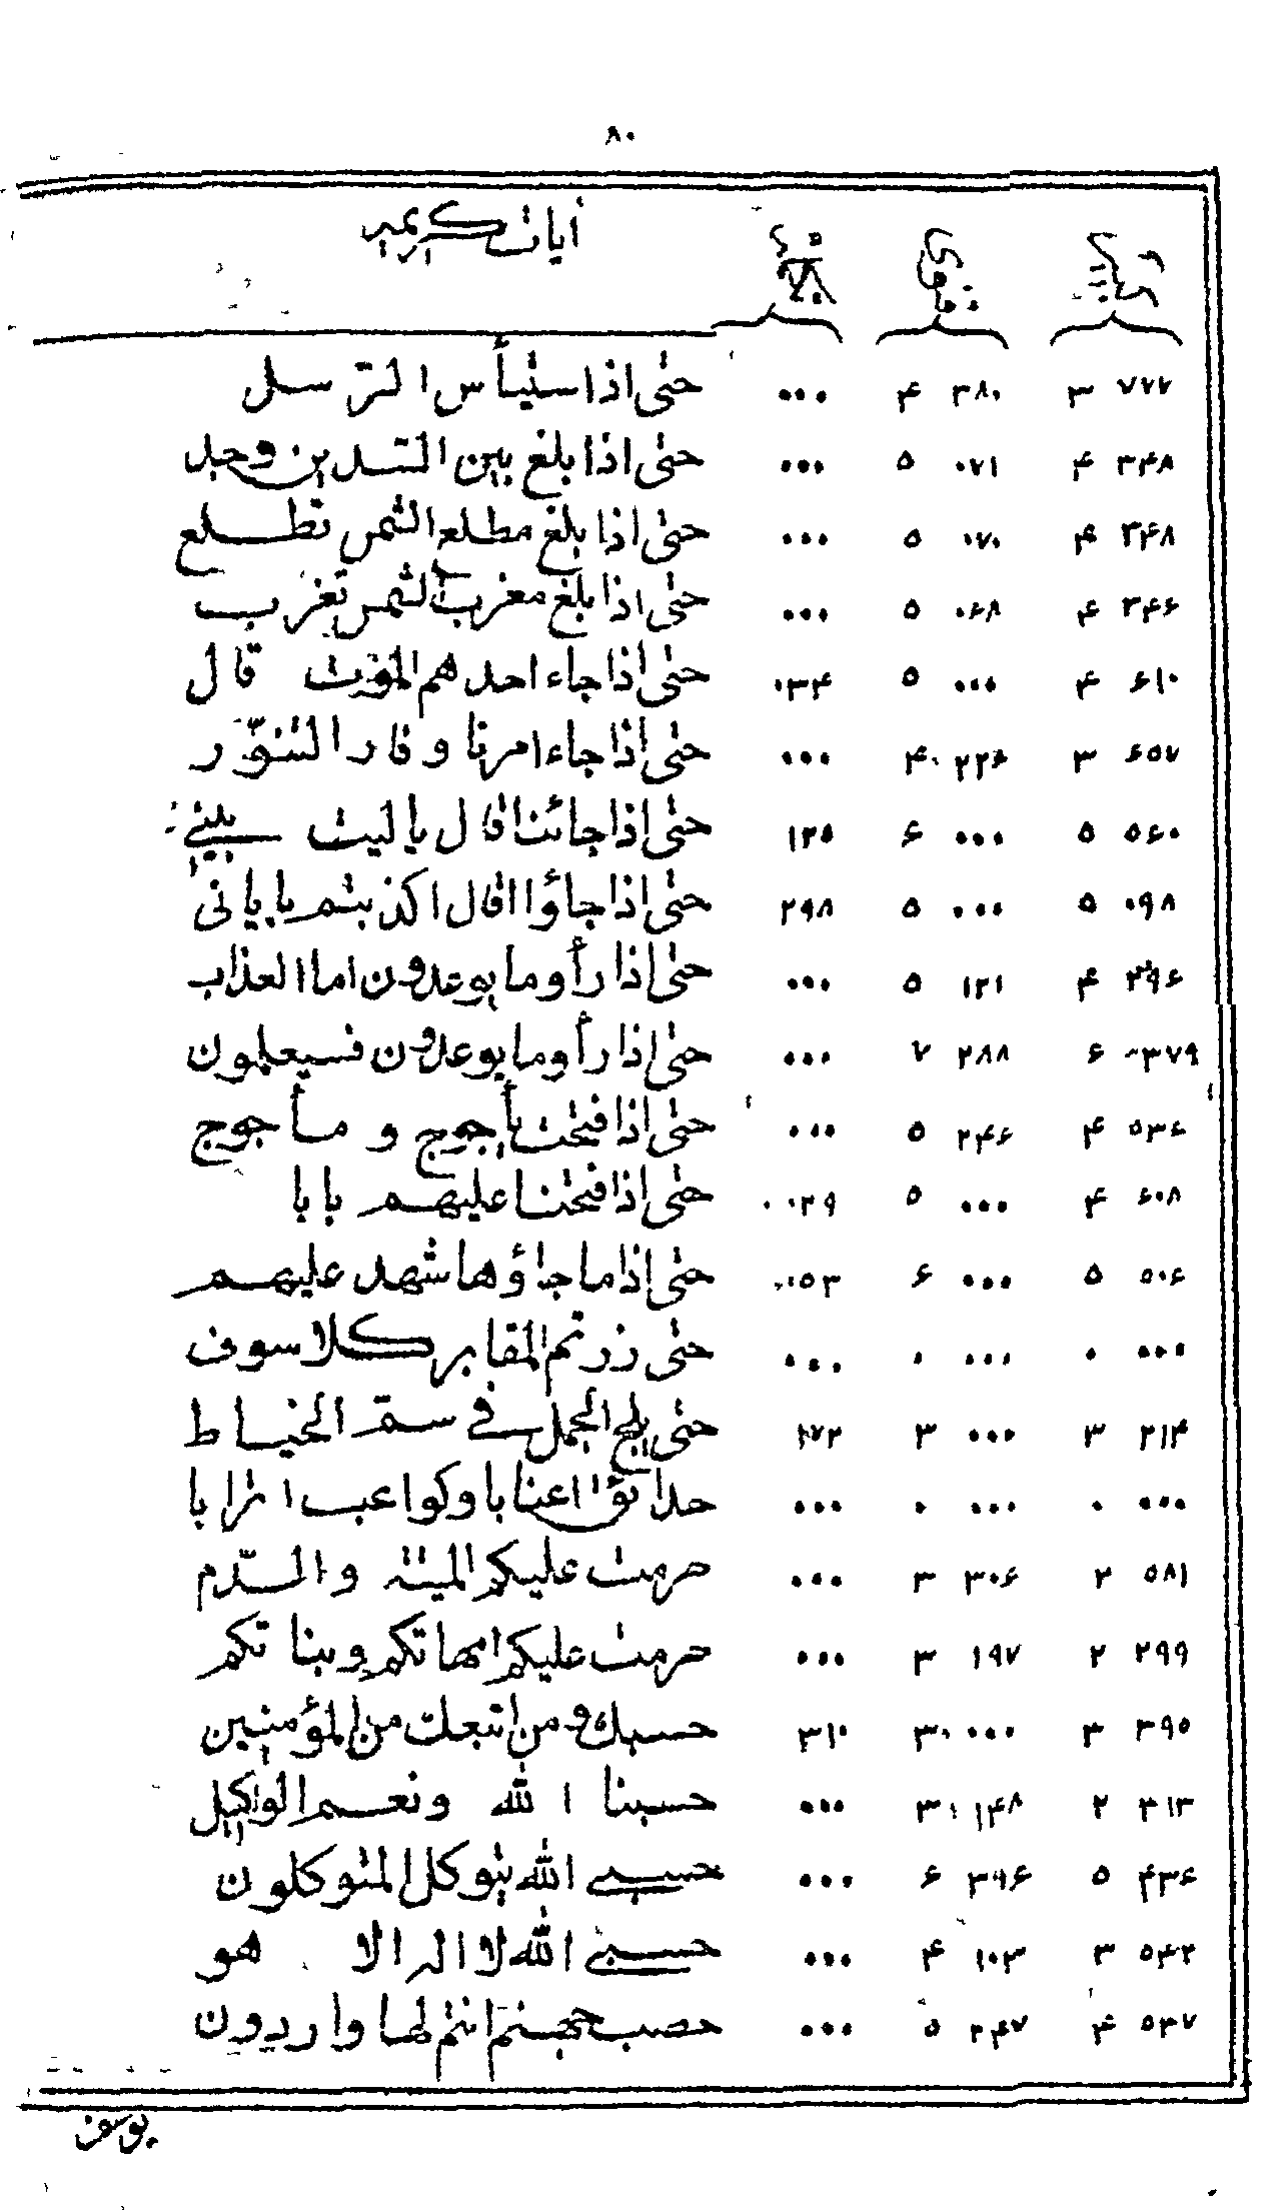 ٨٠
آيات كريمه
٧٧٧ ٣ ٣٨٠ ۴ ٠٠٠ حتى اذا استيأس الرسل
٣۴٨ ۴ ٠٧١ ٥ ٠٠٠ حتى اذا بلغ بين السدين وجد
٣۴٨ ۴ ٠٧٠ ٥ ٠٠٠ حتى اذا بلغ مطلع الشمس تطلع
٣۴۶ ۴ ٠۶٨ ٥ ٠٠٠ حتى اذا بلغ مغرب الشمس تغرب
۶١٠ ۴ ٠٠٠ ٥ ٠٣۴ حتى اذا جاء احدهم الموت قال
۶٥٧ ٣ ٢٢۶ ۴ ٠٠٠ حتى اذا جاء امرنا وفار التنور
٥۶٠ ٥ ٠٠٠ ۶ ١٢٥ حتى اذا جائنا قال ياليت بينى
٠٩٨ ٥ ٠٠٠ ٥ ٢٩٨ حتى اذا جاؤا قال اكذبتم باياتى
٣٩۶ ۴ ١٢١ ٥ ٠٠٠ حتى اذا رأوما يوعدون اما العذاب
٣٧٩ ۶ ٢٨٨ ٧ ٠٠٠ حتى اذا رأوما يوعدون فسيعلمون
٥٣۶ ۴ ٢۴۶ ٥ ٠٠٠ حتى اذا فتحت يأجوج و مأجوج
۶٠٨ ۴ ٠٠٠ ٥ ٠٢٩ حتى اذا فتحنا عليهم بابا
٥٠۶ ٥ ٠٠٠ ۶ ٠٥٣ حتى اذا ما جاؤها شهد عليهم
٠٠٠ ٠ ٠٠٠ ٠ ٠٠٠ حتى زرتم المقابر كلا سوف
٢١۴ ٣ ٠٠٠ ٣ ٢٧٢ حتى يلج الجمل فى سم الخياط
٠٠٠ ٠ ٠٠٠ ٠ ٠٠٠ حدائق اعنابا وكواعب اترابا
٥٨١ ٢ ٣٠۶ ٣ ٠٠٠ حرمت عليكم الميته والدّم
٢٩٩ ٢ ١٩٧ ٣ ٠٠٠ حرمت عليكم امهاتكم وبناتكم
٣٩٥ ٣ ٠٠٠ ٣ ٣١٠ حسبك ومن اتبعك من المؤمنين
٣١٣ ٢ ١۴٨ ٣ ٠٠٠ حسبنا الله ونعم الوكيل
۴٣۶ ٥ ٣٩۶ ۶ ٠٠٠ حسبى الله يتوكل المتوكلون
٥۴٢ ٣ ١٠٣ ۴ ٠٠٠ حسبى الله لا اله الا هو
٥٣٧ ۴ ٢۴٧ ٥ ٠٠٠ حصب جهنم انتم لها واردون